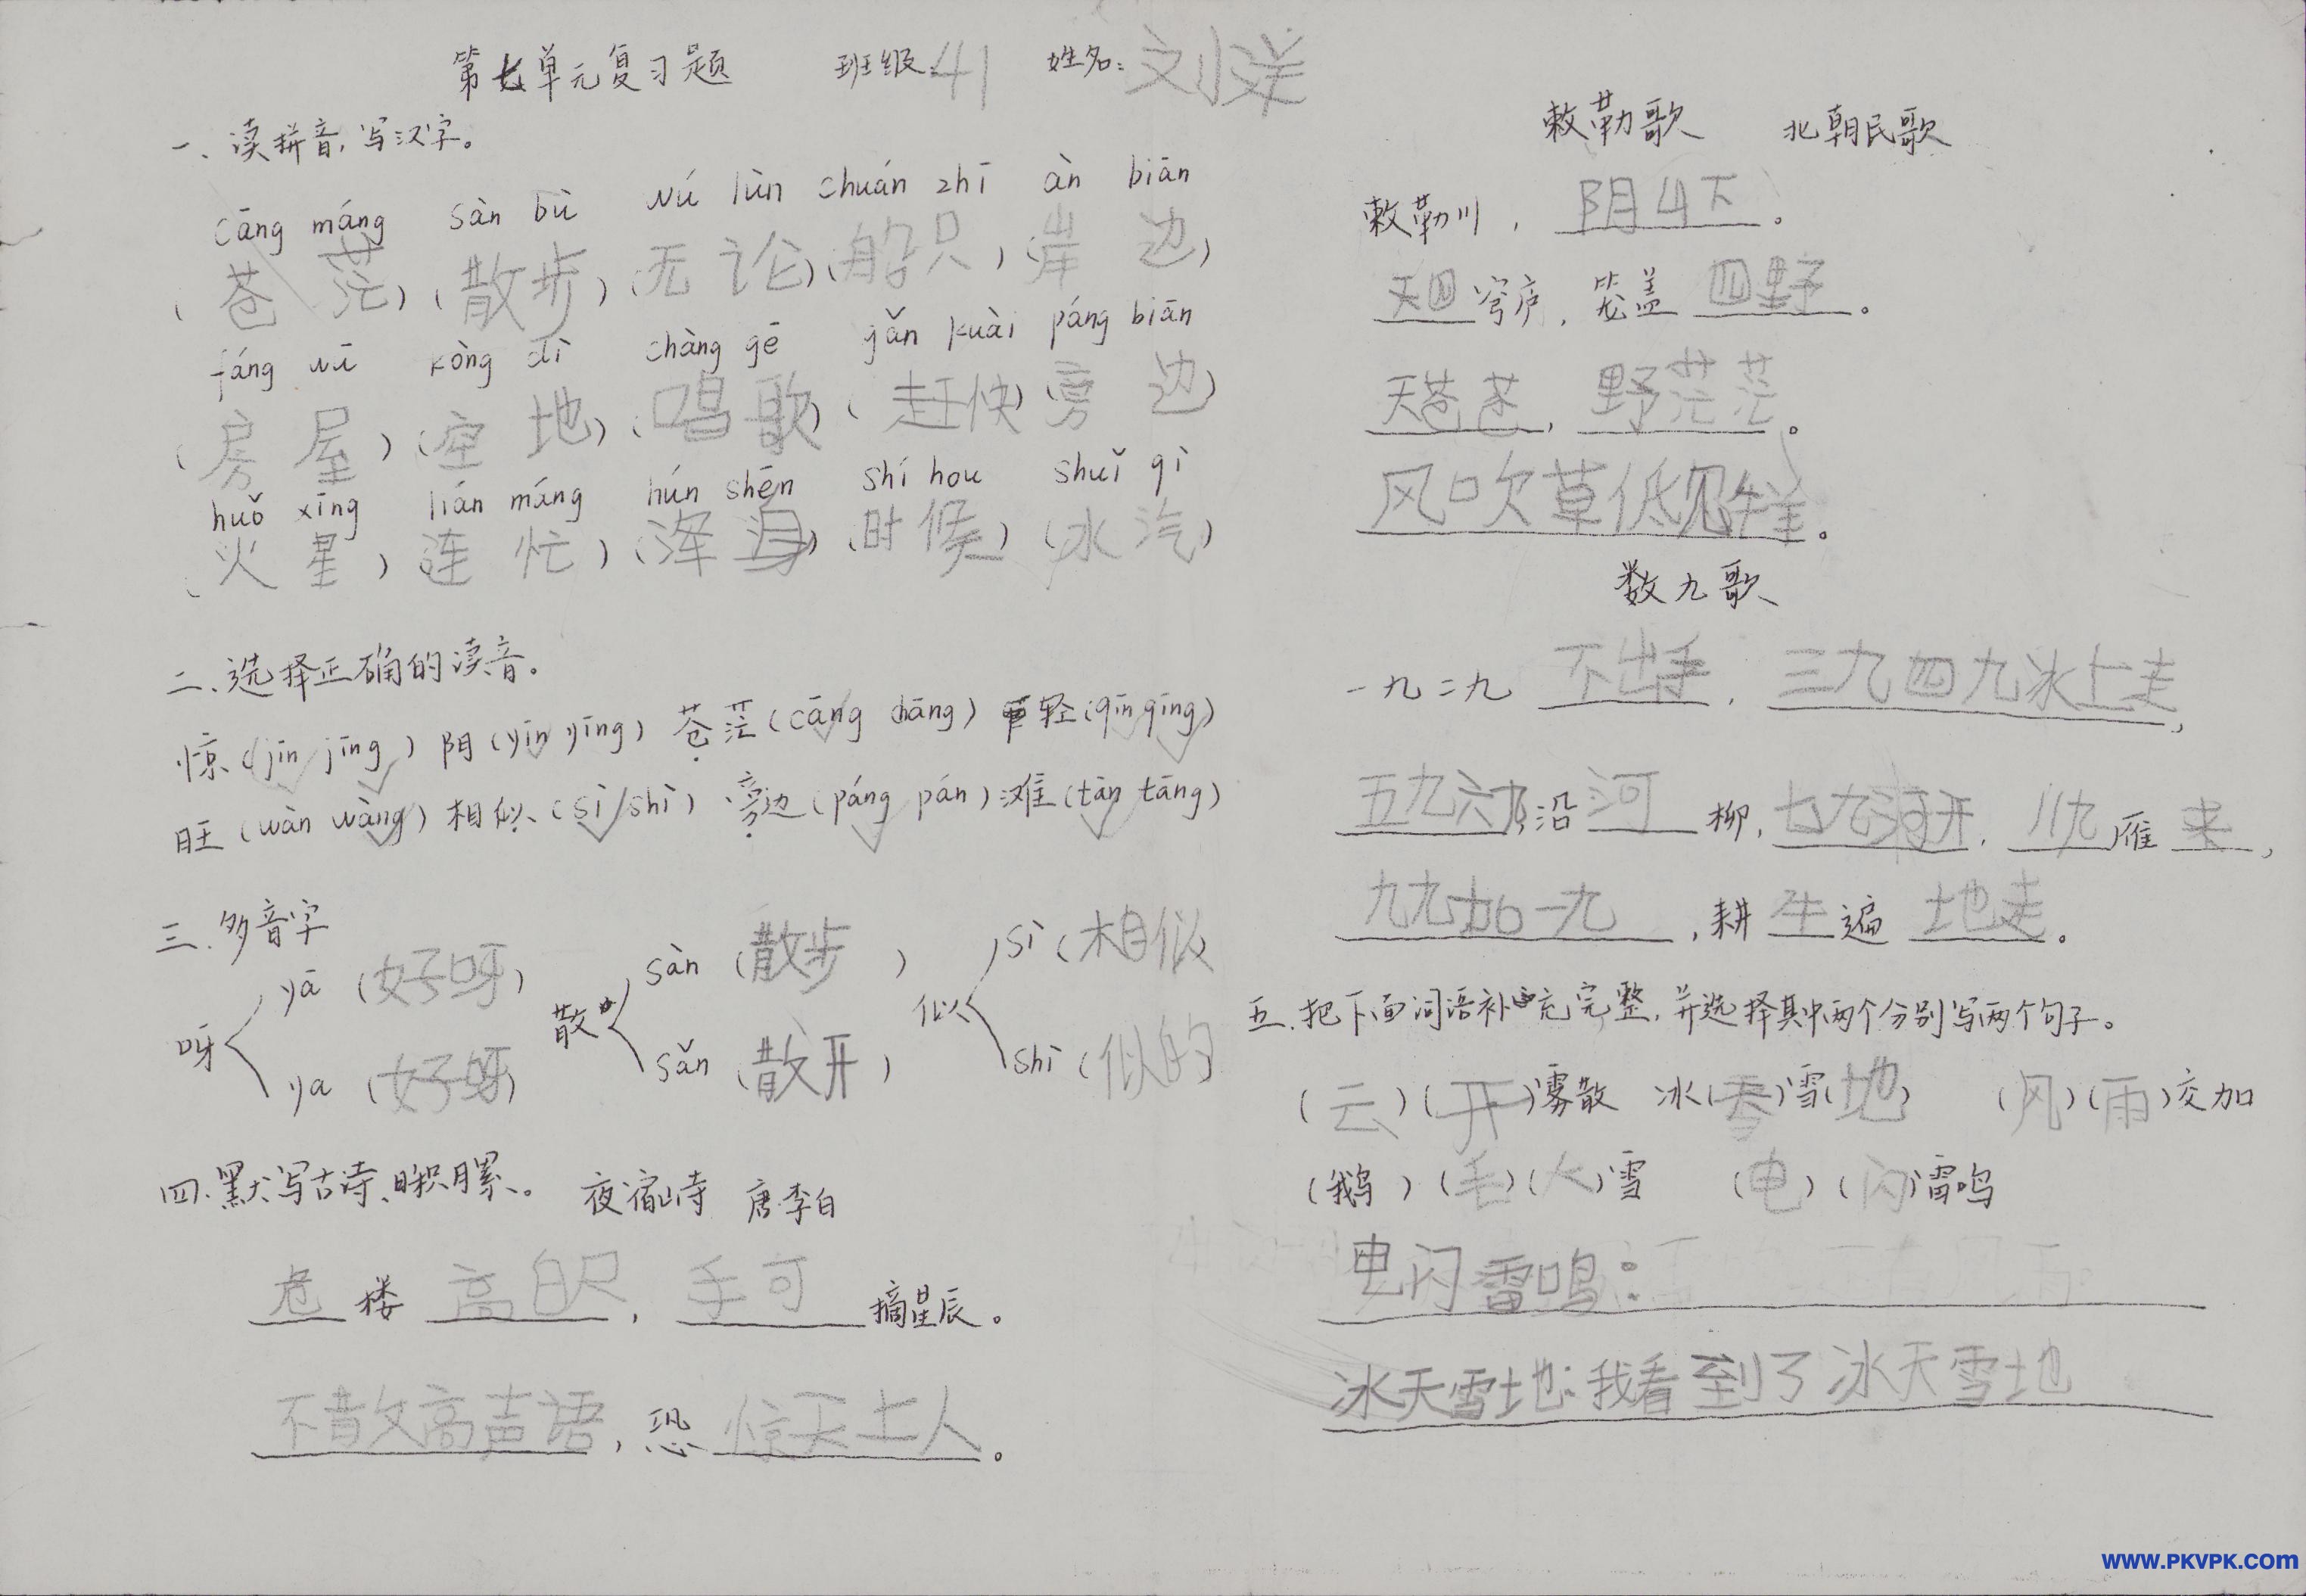 第七单元复习题 班级:41 姓名:刘洋
一、读拼音,写汉字。
cāng máng sàn bù wú lùn chuán zhī àn biān
(苍 茫)(散步)(无 论)(船只)(岸 边)
fáng wū kòng dì chàng gē gǎn kuài páng biān
(房 屋)(空 地)(唱 歌)(赶快)(旁 边)
huǒ xīng lián máng hún shēn shí hou shuǐ qì
(火 星)(连 忙)(浑 身)(时 候)(水 汽)
二、选择正确的读音。
惊(jīn jīng)阴(yīn yīng)苍茫(cāng chāng)轻(qīn qīng)
旺(wàn wàng)相似(sì shì)旁边(páng pán)滩(tān tāng)
三、多音字
呀 yā(好呀) 散 sàn(散步) 似 sì(相似)
ya(好呀) sǎn(散开) shì(似的)
四、默写古诗、日积月累。 夜宿山寺 唐李白
危 楼 高百尺,手可 摘星辰。
不敢高声语,恐 惊天上人。
敕勒歌 北朝民歌
敕勒川,阴山下。
天四穹庐,笼盖 四野。
天苍苍,野茫茫。
风吹草低见牛羊。
数九歌
一九二九 不出手,三九四九冰上走,
五九六九,沿 河 柳,七九河开,八九雁 来,
九九加一九,耕 牛 遍 地走。
五、把下面词语补充完整,并选择其中两个分别写两个句子。
(云)(开)雾散 冰(天)雪(地) (风)(雨)交加
(鹅)(毛)(大)雪 (电)(闪)雷鸣
电闪雷鸣:
冰天雪地:我看到了冰天雪地
www.PKVPK.com